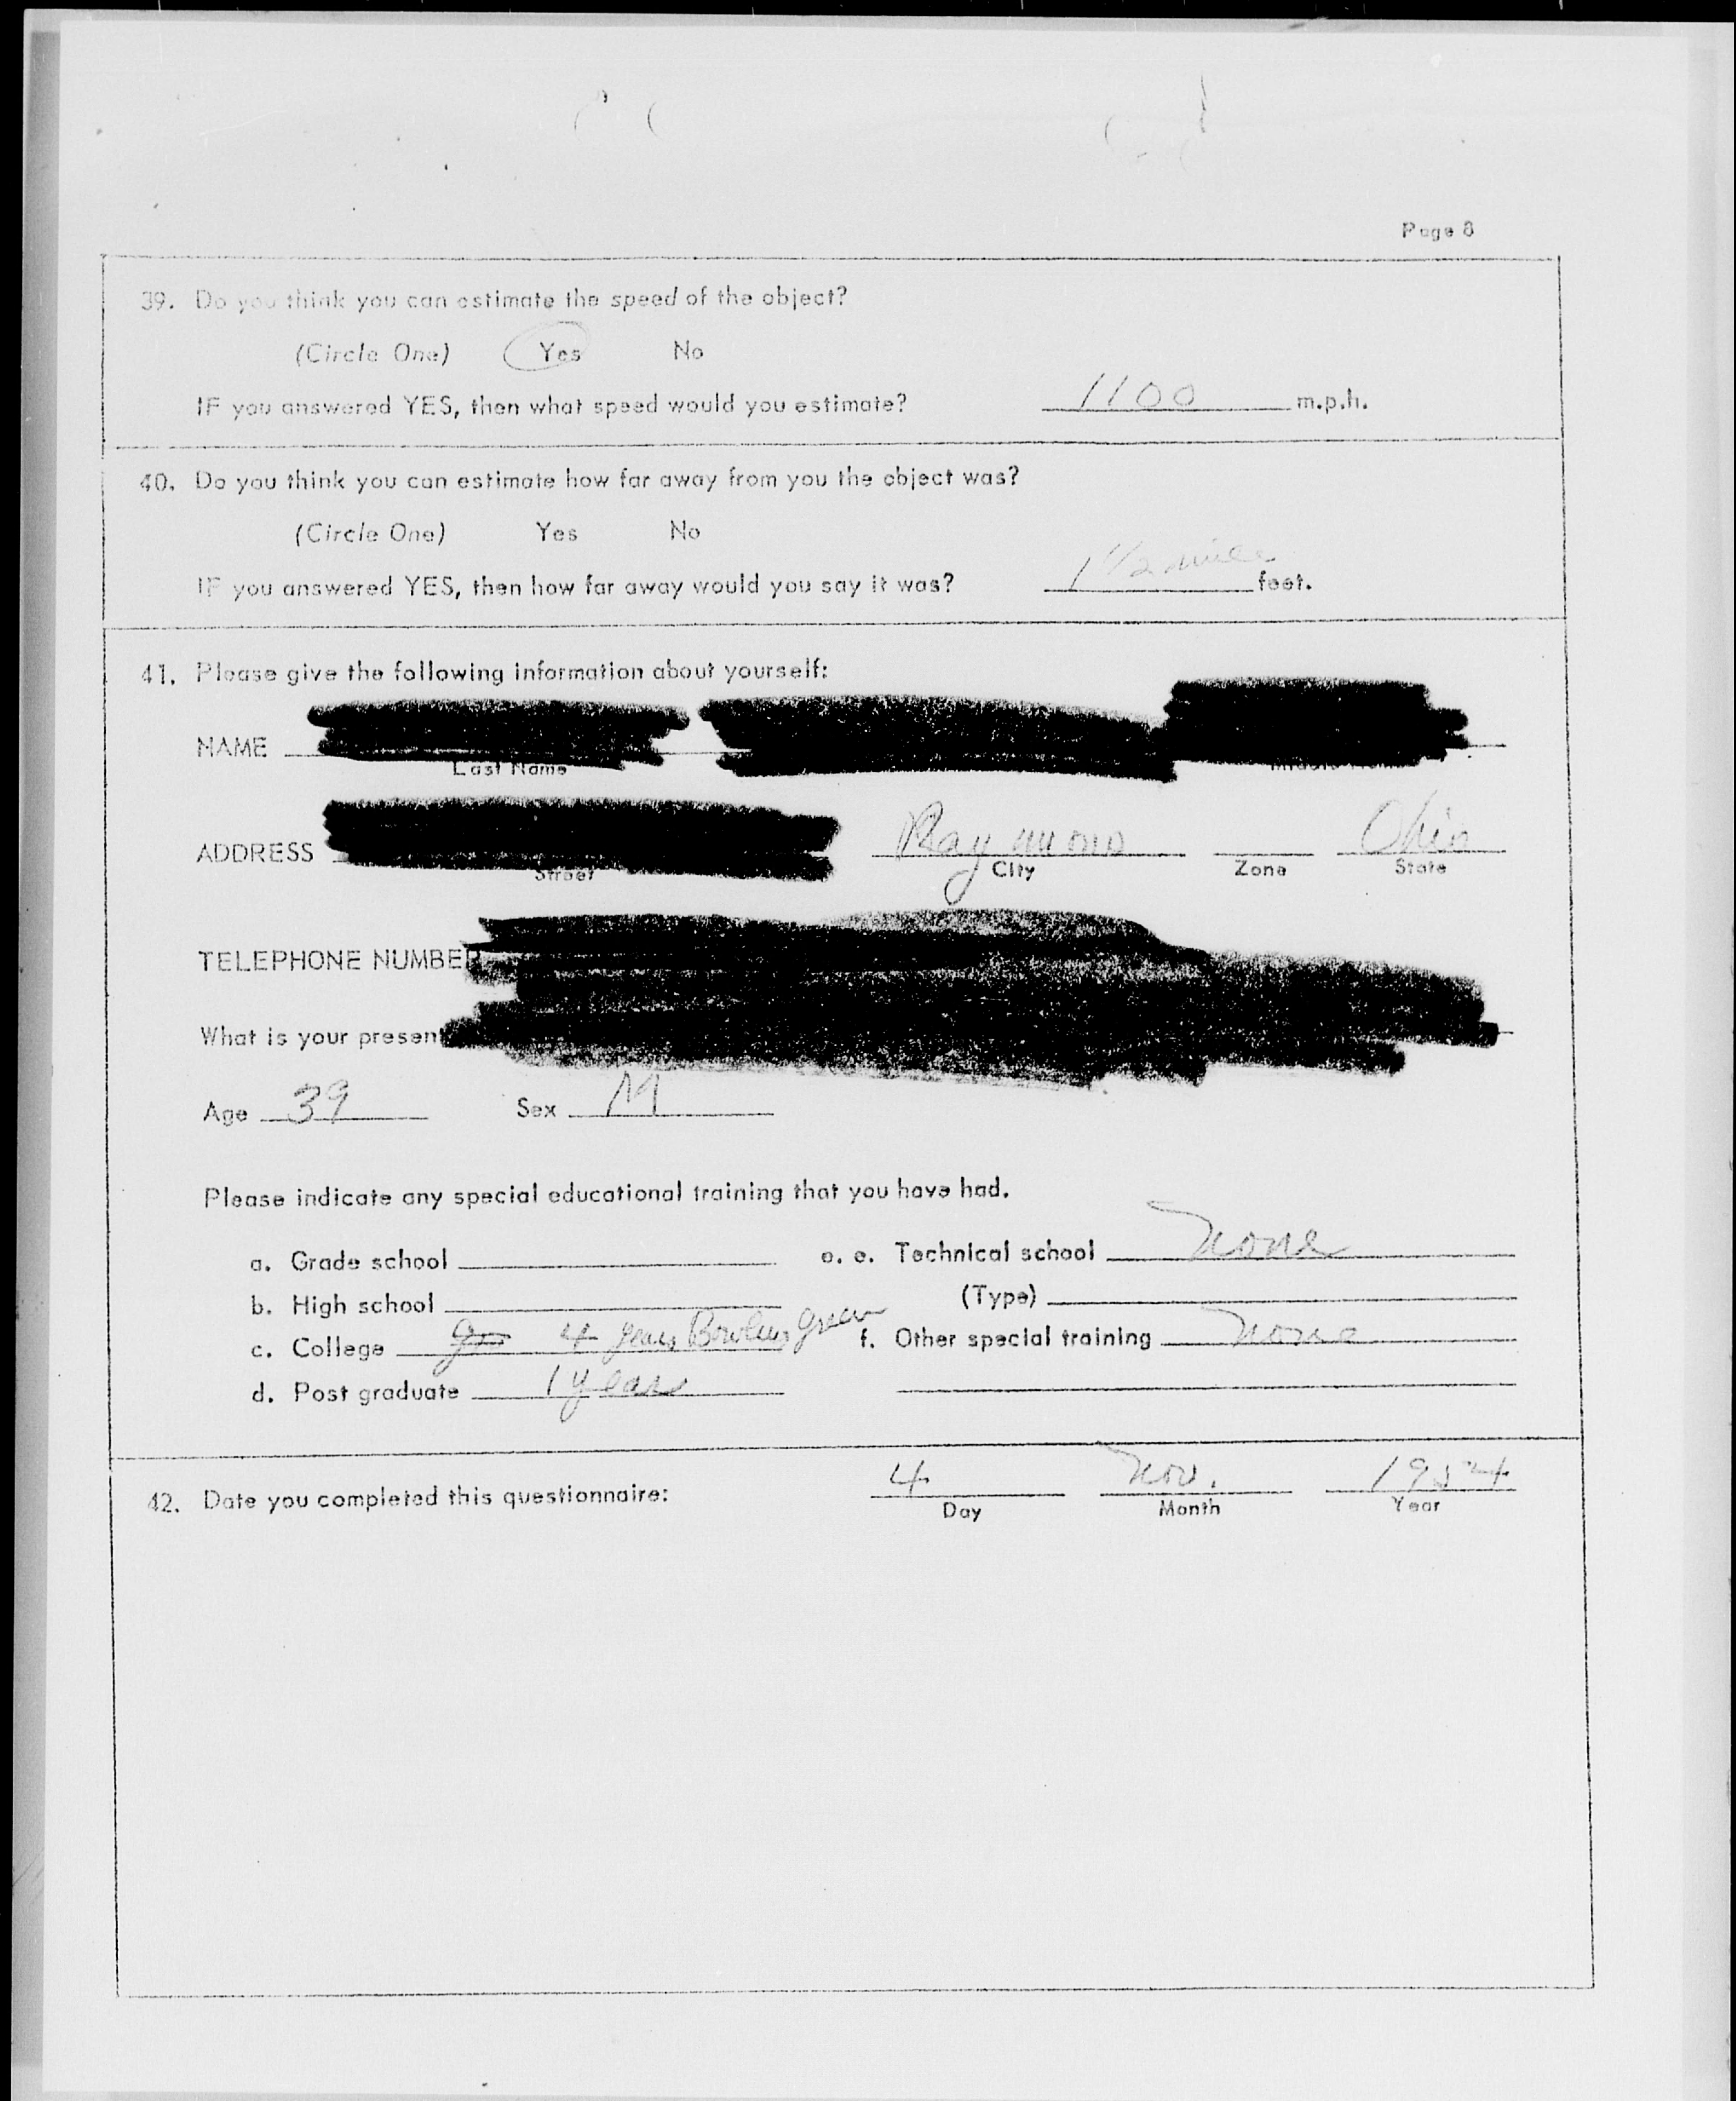 Page 8
39. Do you think you can estimate the speed of the object?
(Circle One) Yes No
IF you answered YES, then what speed would you estimate? 1100 m.p.h.
40. Do you think you can estimate how far away from you the object was?
(Circle One) Yes No
IF you answered YES, then how far away would you say it was? 1 1/2 mile feet.
41. Please give the following information about yourself:
NAME
Last Name
ADDRESS Raymond Ohio
Street City Zone State
TELEPHONE NUMBER
What is your present
Age 39 Sex M
Please indicate any special educational training that you have had.
a. Grade school e. e. Technical school None
b. High school (Type)
c. College 4 years Bowling Green f. Other special training None
d. Post graduate 1 year
42. Date you completed this questionnaire: 4 Nov. 1954
Day Month Year